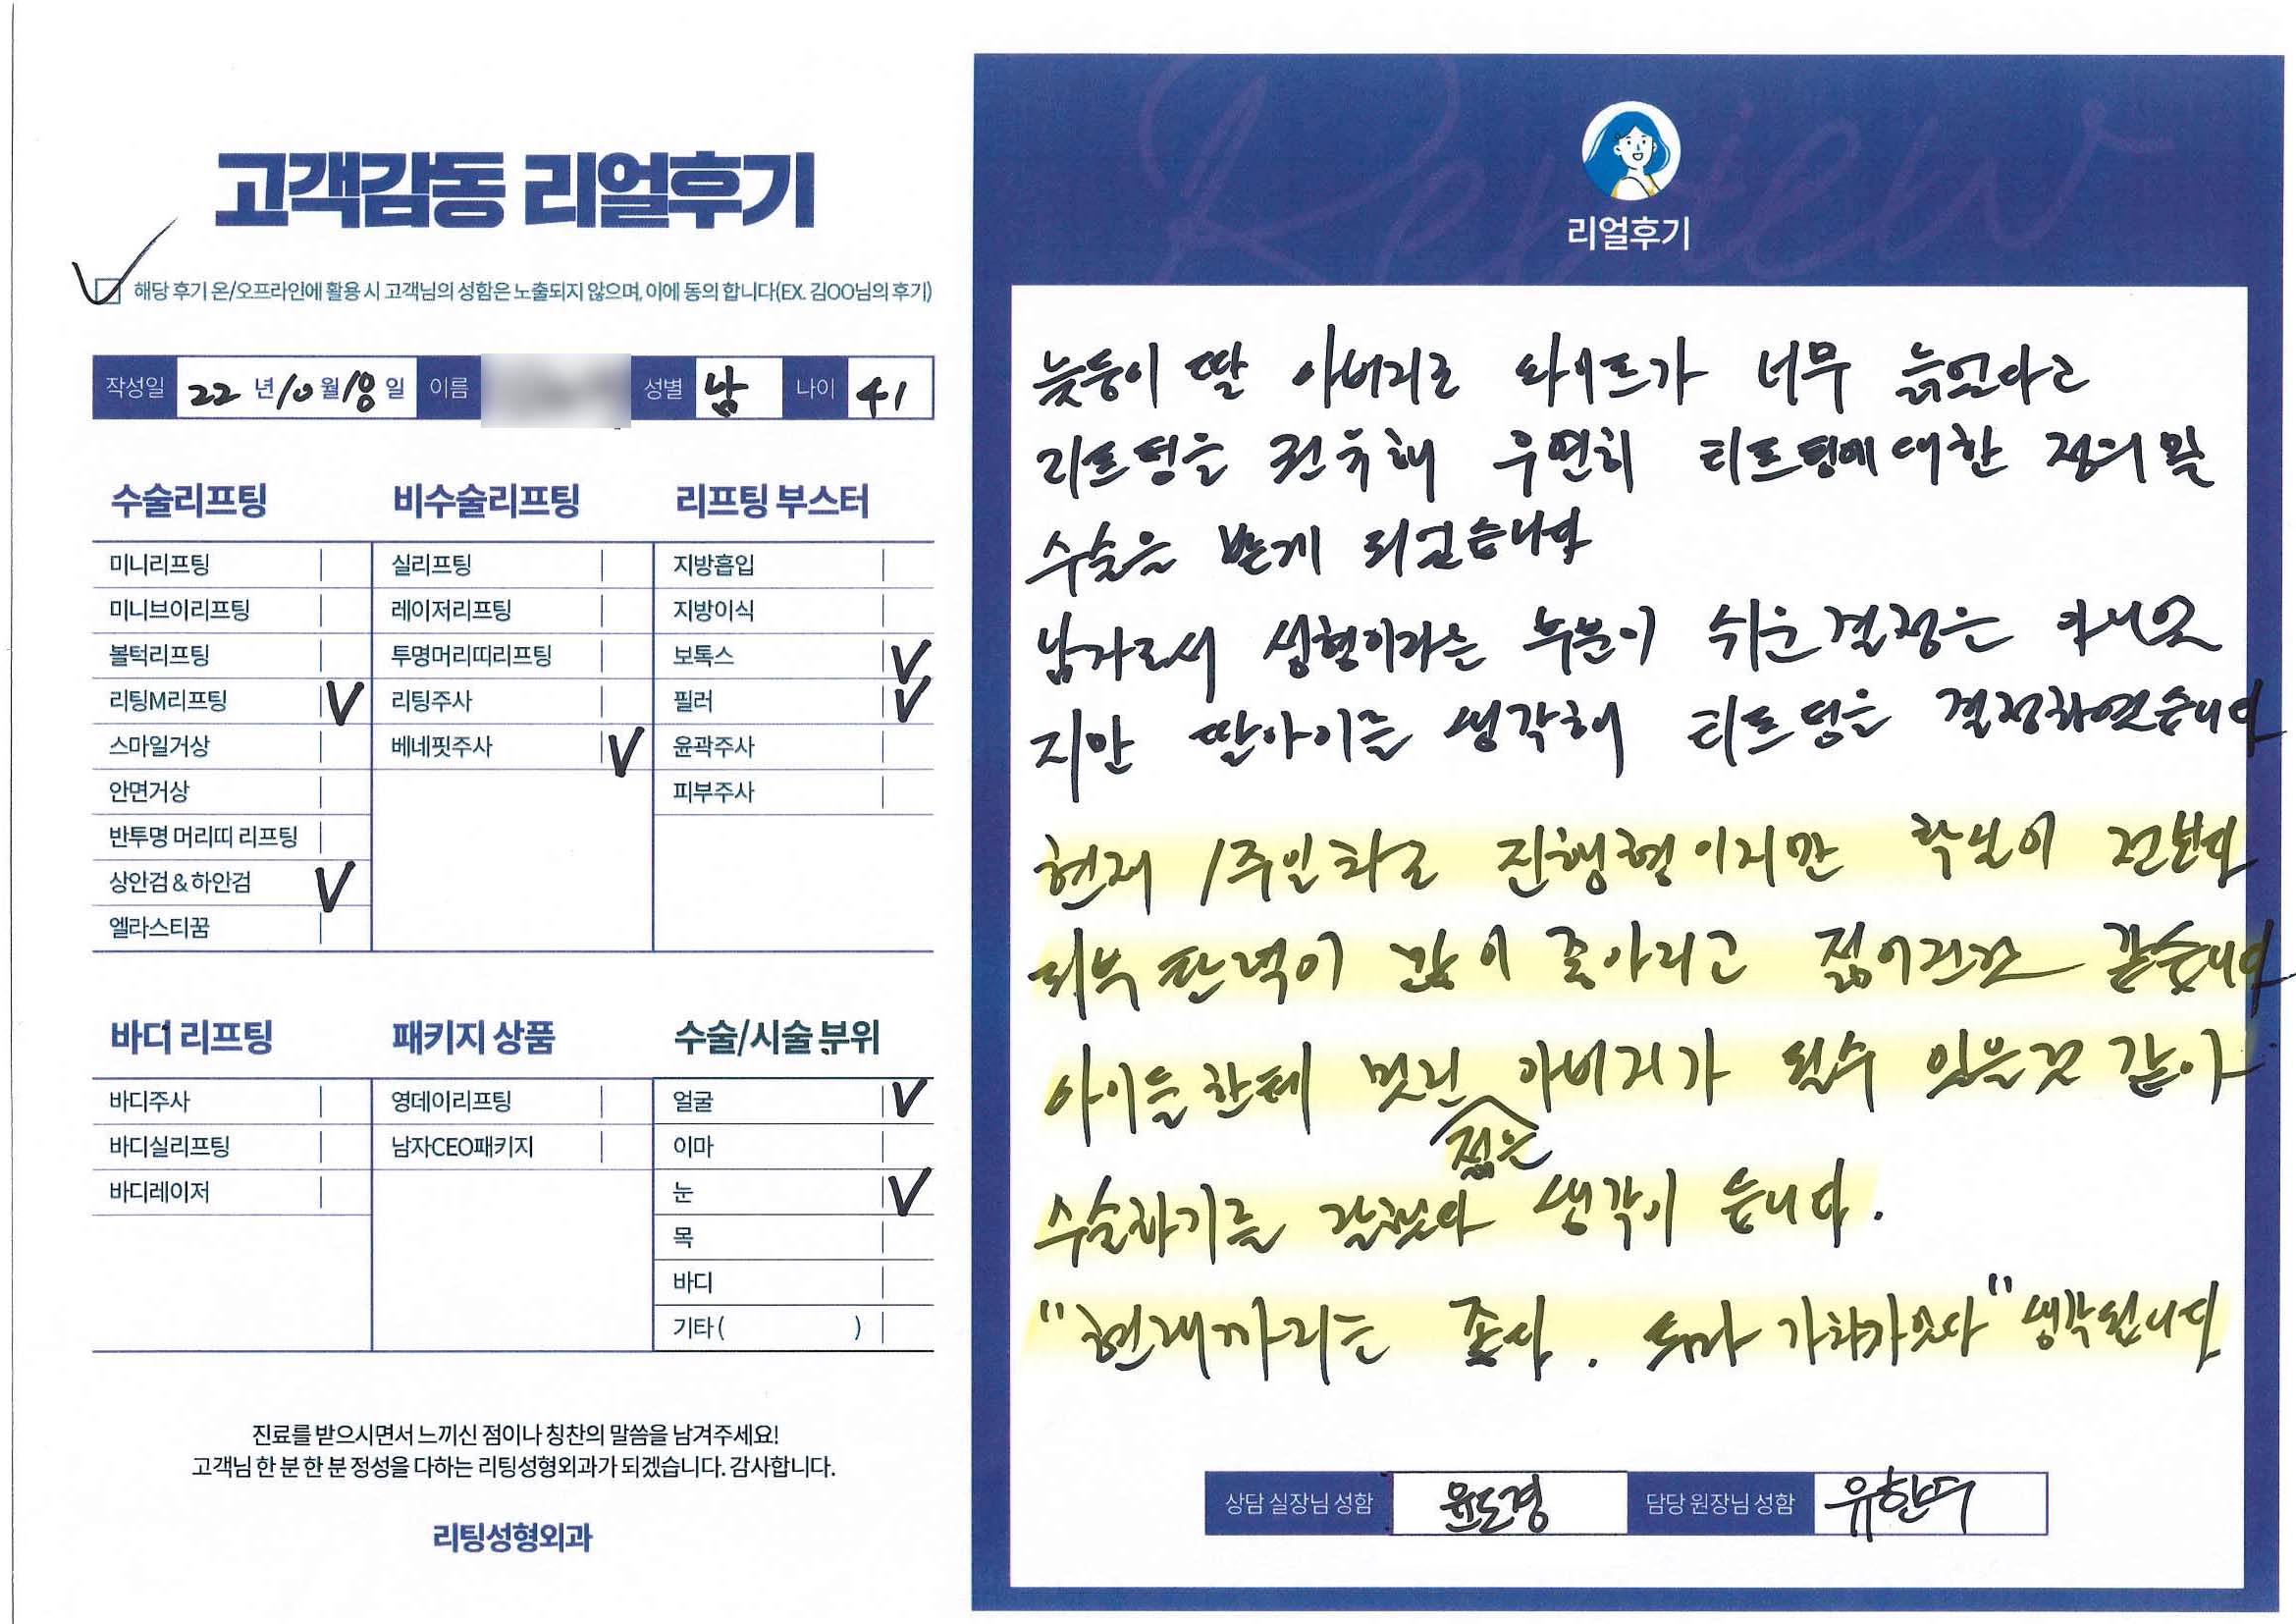 고객감동 리얼후기
해당 후기 온/오프라인에 활용 시 고객님의 성함은 노출되지 않으며, 이에 동의 합니다(EX. 김OO님의 후기)
작성일 22 년 10 월 18 일 이름 성별 남 나이 41
수술리프팅
미니리프팅
미니브이리프팅
볼턱리프팅
리팅M리프팅 V
스마일거상
안면거상
반투명 머리띠 리프팅
상안검 & 하안검 V
엘라스티꿈
비수술리프팅
실리프팅
레이저리프팅
투명머리띠리프팅
리팅주사
베네핏주사 V
리프팅 부스터
지방흡입
지방이식
보톡스 V
필러 V
윤곽주사
피부주사
바디 리프팅
바디주사
바디실리프팅
바디레이저
패키지 상품
영데이리프팅
남자CEO패키지
수술/시술 부위
얼굴 V
이마
눈 V
목
바디
기타 ( )
진료를 받으시면서 느끼신 점이나 칭찬의 말씀을 남겨주세요!
고객님 한 분 한 분 정성을 다하는 리팅성형외과가 되겠습니다. 감사합니다.
리팅성형외과
Review
리얼후기
늦둥이 딸 아버지로 와이프가 너무 늙었다고
리프팅을 권유해 우연히 대한
수술을 받게 되었습니다
남자로서 성형이라는 부분이 쉬운결정은 아니였
지만 딸아이를 생각해 결정하였습니다
현재 1주일차로 진행형이지만 확실히 전보다
피부 탄력이 많이 좋아지고 젊어진것 같습니다
아이들한테 멋진 아버지가 될수 있을것 같아
젊은
수술하기를 잘했다 생각이 듭니다.
"현재까지는 좋다. 가치가있다" 생각됩니다
상담 실장님 성함 윤도경 담당 원장님 성함